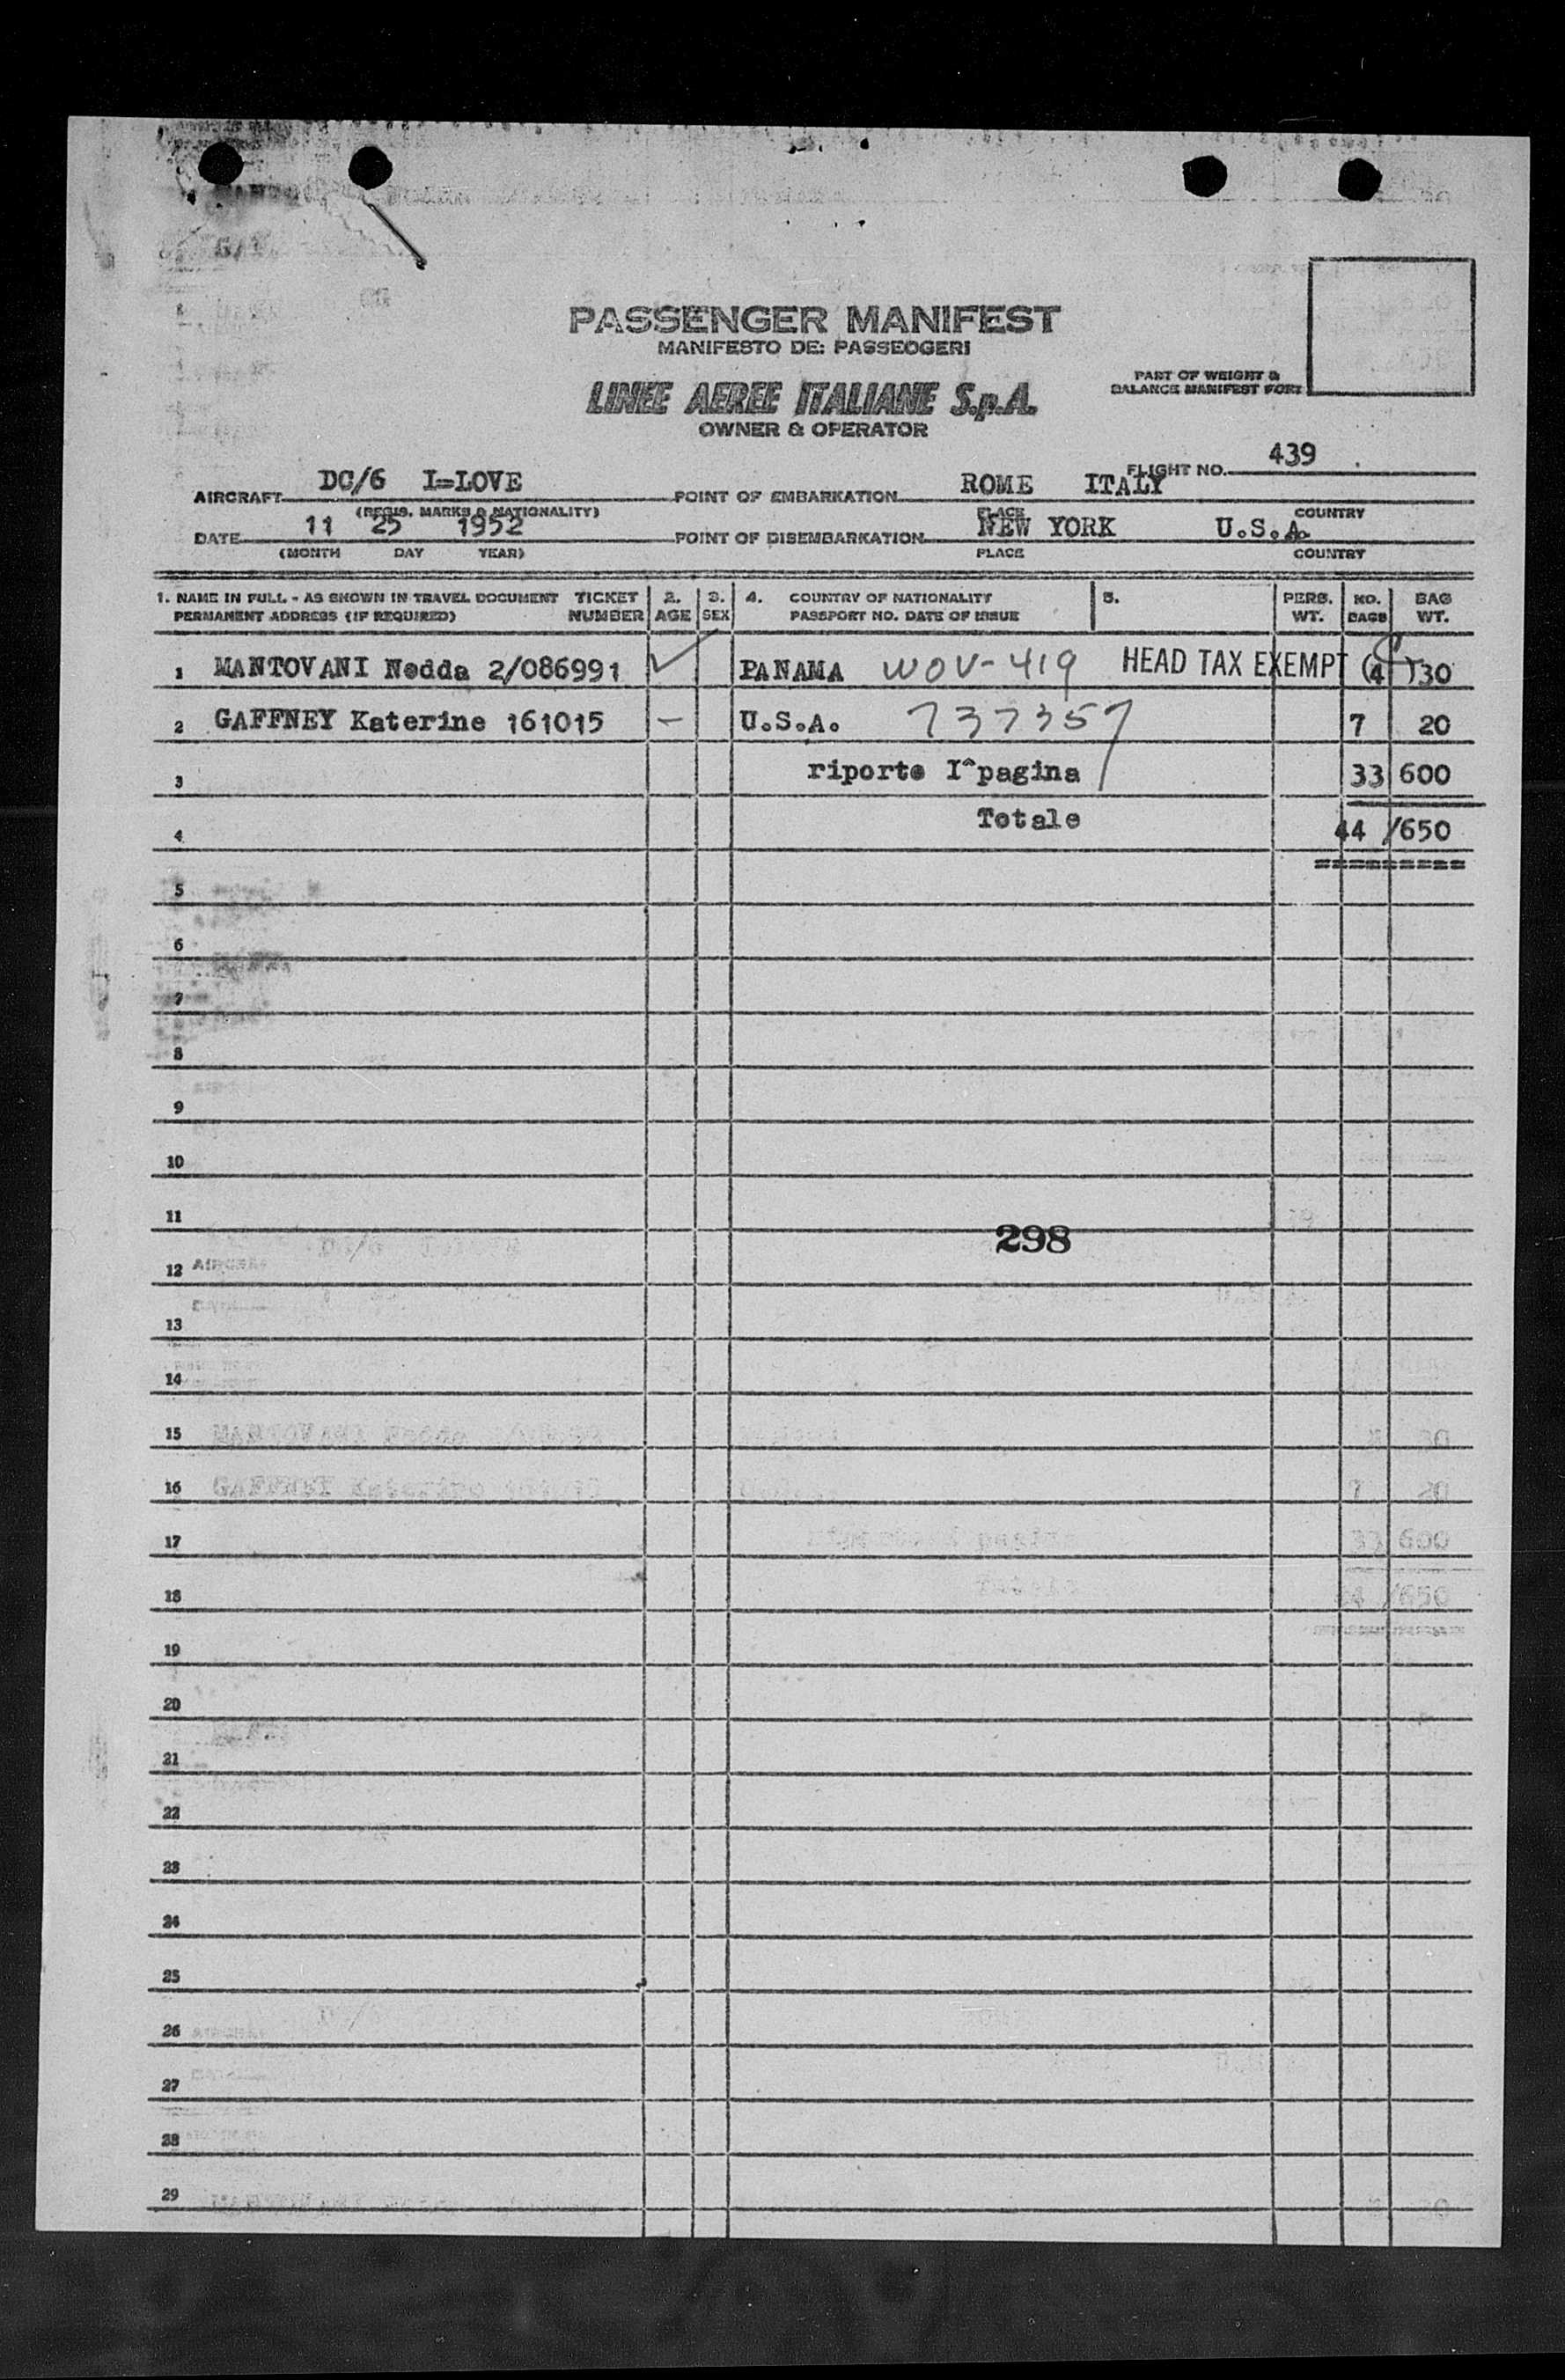 PASSENGER MANIFEST
MANIFESTO DE: PASSEOGERI
LINEE AEREE ITALIANE S.p.A.
OWNER & OPERATOR
PART OF WEIGHT &
BALANCE MANIFEST FORT
FLIGHT NO. 439
AIRCRAFT DC/6 I=LOVE POINT OF EMBARKATION ROME ITALY
(REGIS. MARKS & NATIONALITY) PLACE COUNTRY
DATE 11 25 1952 POINT OF DISEMBARKATION NEW YORK U.S.A.
(MONTH DAY YEAR) PLACE COUNTRY
1. NAME IN FULL - AS SHOWN IN TRAVEL DOCUMENT TICKET 2. 3. 4. COUNTRY OF NATIONALITY 5. PERS. NO. BAG
PERMANENT ADDRESS (IF REQUIRED) NUMBER AGE SEX PASSPORT NO. DATE OF ISSUE WT. BAGS WT.
1 MANTOVANI Nedda 2/086991 PANAMA WOV-419 HEAD TAX EXEMPT (4) 30
2 GAFFNEY Katerine 161015 - U.S.A. 737357 7 20
3 riporto I^pagina 33 600
4 Totale 44 /650
=========
5
6
7
8
9
10
11
298
12
13
14
15
16
17
18
19
20
21
22
23
24
25
26
27
28
29